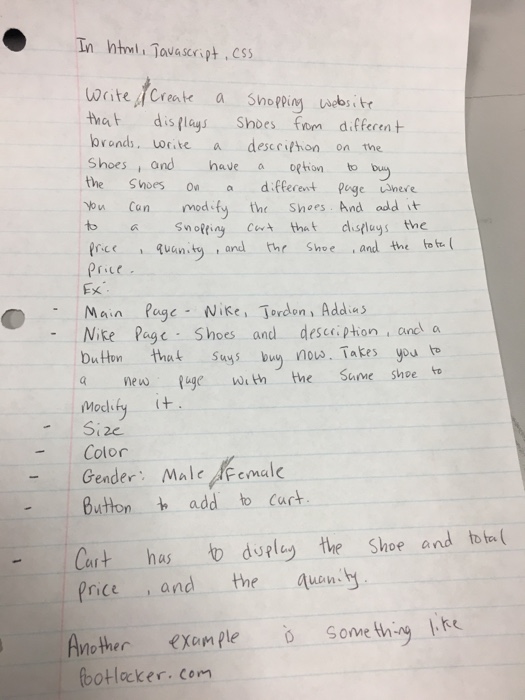 In html, Javascript, CSS
Write / Create a Shopping website
that displays Shoes from different
brands. write a description on the
Shoes, and have a option to buy
the Shoes on a different page where
You can modify the Shoes. And add it
to a Shopping Cart that displays the
Price, quanity, and the shoe, and the total
Price.
Ex:
- Main Page - Nike, Jordon, Addias
- Nike Page - Shoes and description, and a
button that says buy now. Takes you to
a new page with the Same shoe to
Modify it.
- Size
- Color
- Gender: Male / Female
- Button to add to cart.
- Cart has to display the Shoe and total
Price, and the quanity.
Another example is something like
footlocker.com